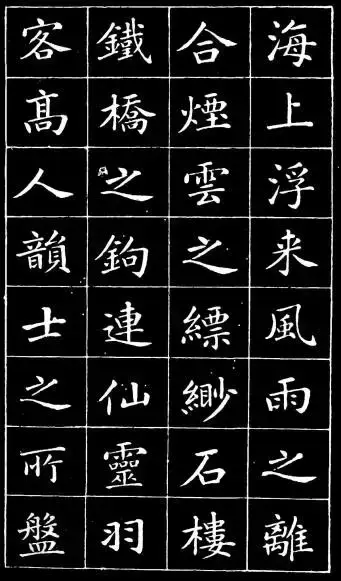 海上浮来風雨之離
合煙雲之縹緲石樓
鐵橋之鉤連仙靈羽
客高人韻士之所盤